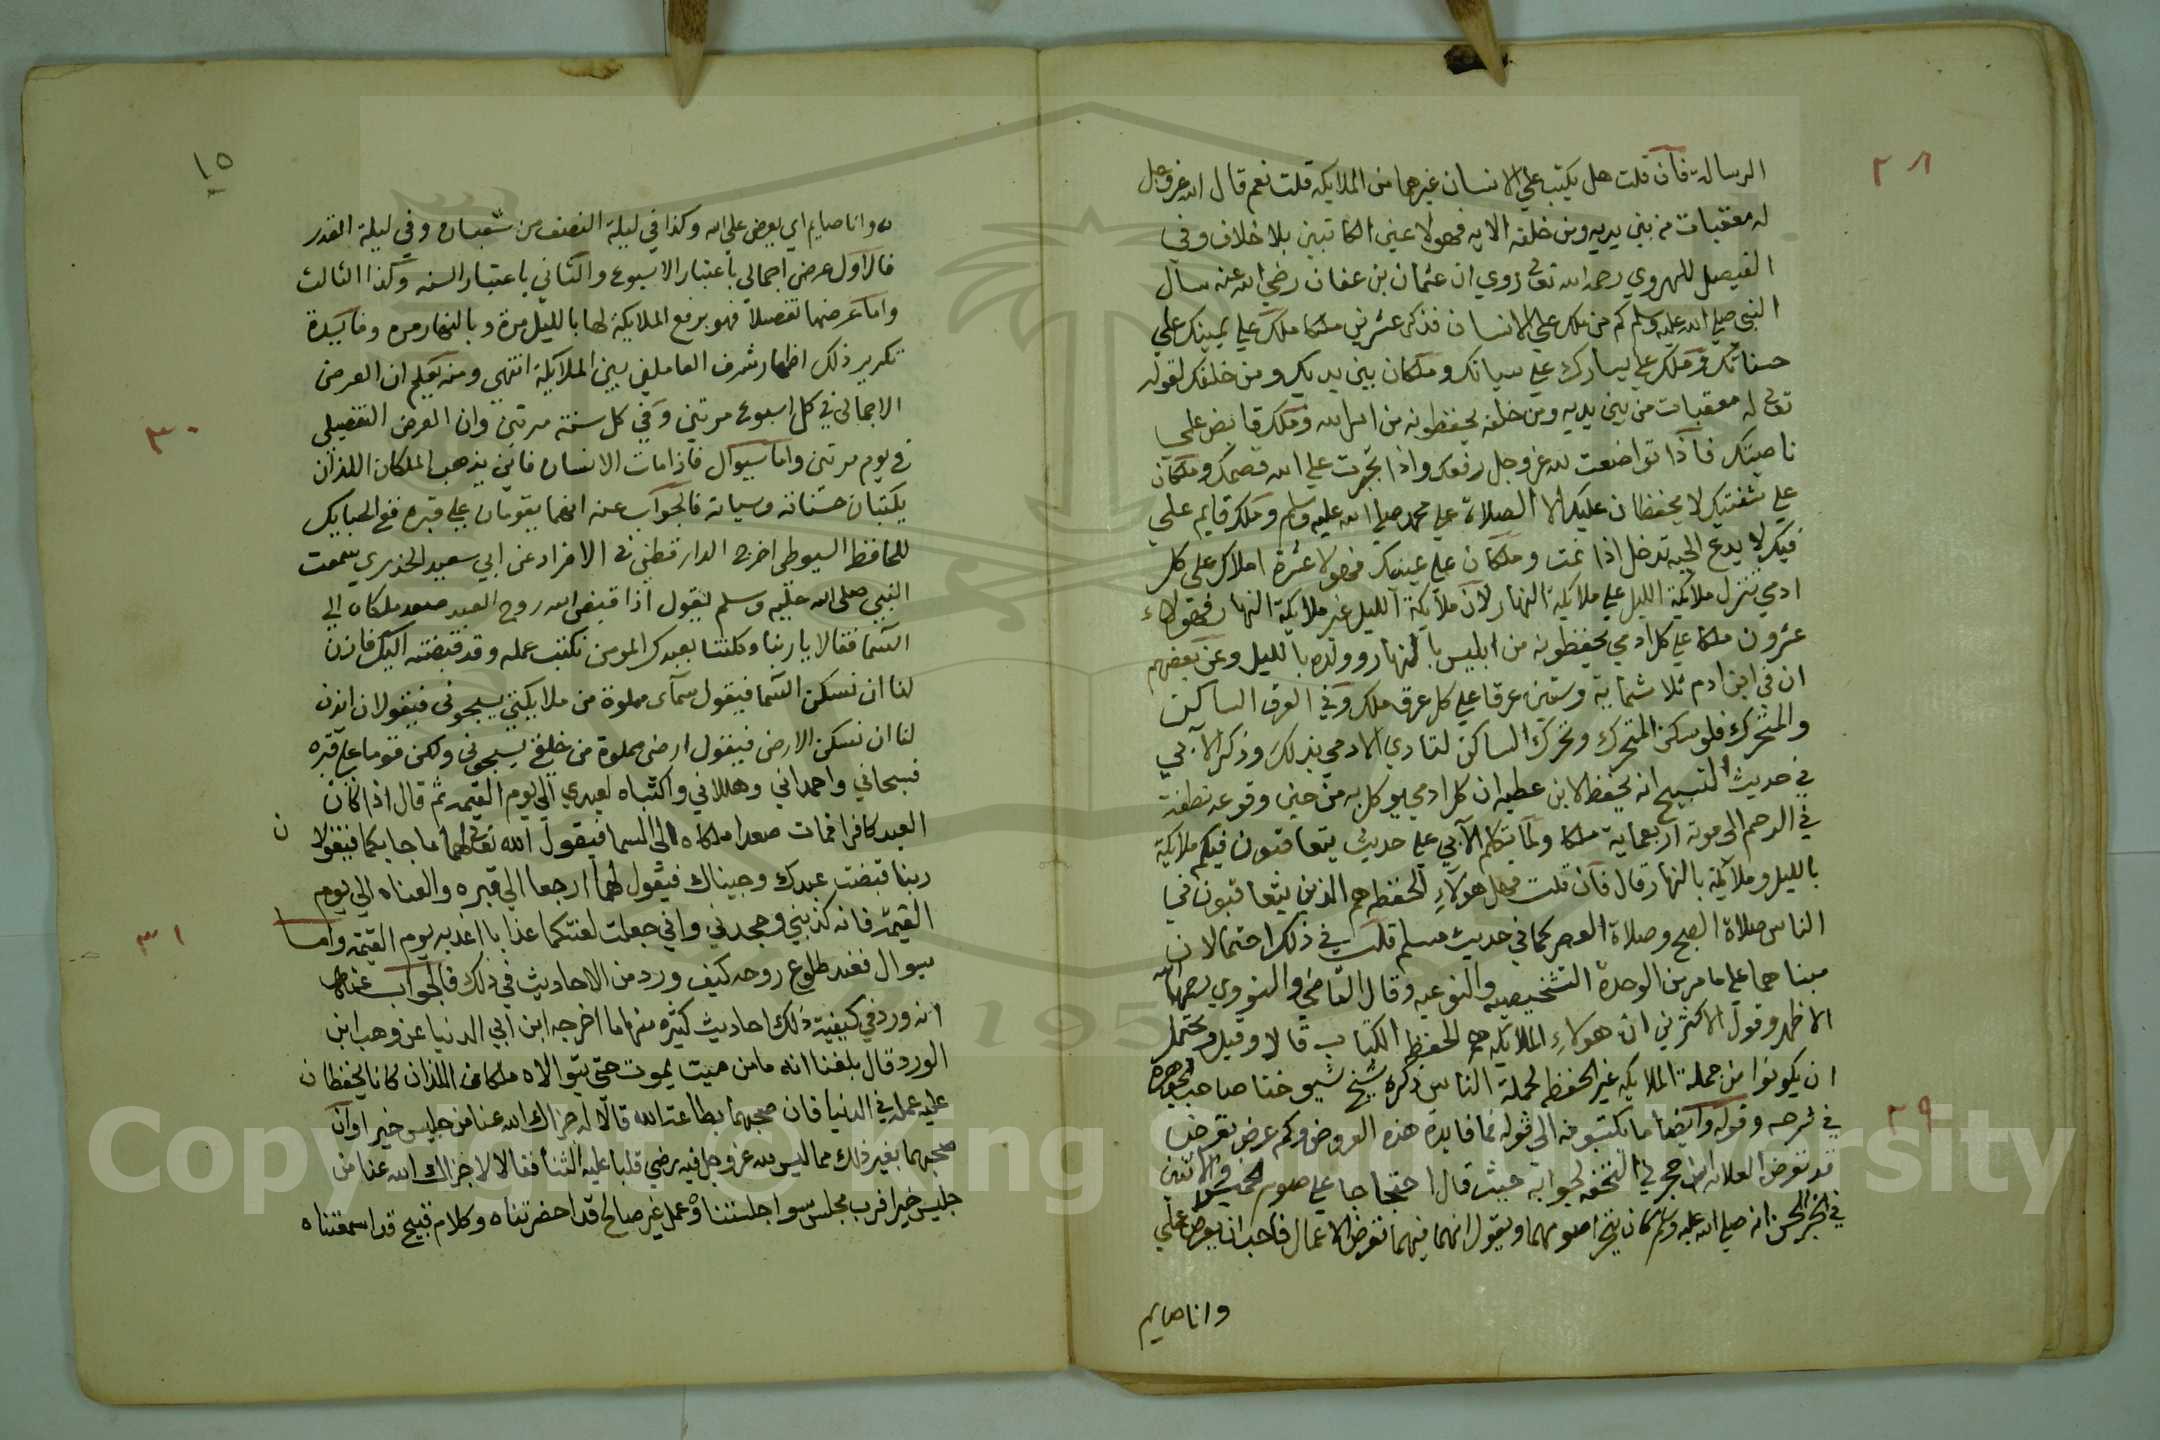 ٢٨
الرسالة فان قلت هل يكتب علي الانسان غيرهما من الملايكة قلت نعم قال الله عز وجل
له معقبات من بين يديه ومن خلفه الايه فهولا غير الكاتبين بلا خلاف وفي
الفيصل للهروي رحمه الله تعالى روي ان عثمان بن عفان رضي الله عنه سأل
النبي صلي الله عليه وسلم كم من ملك علي الانسان فذكر عشرين ملكا ملك علي يمينك علي
حسناتك وملك علي يسارك علي سياتك وملكان بين يديك ومن خلفك لقوله
تعالى له معقبات من بين يديه ومن خلفه يحفظونه من امر الله وملك قابض علي
ناصيتك فاذا تواضعت لله عز وجل رفعك واذا تجبرت علي الله قصمك وملكان
علي شفتيك لا يحفظان عليك الا الصلاة علي محمد صلي الله عليه وسلم وملك قايم علي
فيك لا يدع الحية تدخل اذا نمت وملكان علي عينيك فهولا عشرة املاك علي كل
ادمي تنزل ملائكة الليل علي ملايكة النهار لان ملايكة الليل غير ملايكة النهار فهولاء
عشرون ملكا علي كل ادمي يحفظونه من ابليس بالنهار وولده بالليل وعن بعضهم
ان في ابن ادم ثلاثماية وستين عرقا علي كل عرق ملك وفي العرق الساكن
والمتحرك فلو سكن المتحرك وتحرك الساكن لتاذي الادمي بذلك وذكر الآبي
في حديث التسبيح انه يحفظ لابن عطيه ان كل ادمي يوكل به من حين وقوعه نطفة
في الرحم الى موته اربعماية ملكا ولما تكلم الآبي علي حديث يتعاقبون فيكم ملايكة
بالليل وملائكة بالنهار قال فان قلت هل هولاء الحفظه هم الذين يتعاقبون في
الناس صلاة الصبح وصلاة العصر كما في حديث مسلم قلت في ذلك احتمالان
مبناهما علي ما مر من الوحدة التشخيصيه والنوعيه وقال القاضي والنووي رحمهما الله
الاظهر وقول الاكثرين ان هولاء الملايكه هم الحفظه الكتاب قالا وقيل ويحتمل
ان يكونوا من جملة الملايكه غير الحفظه لجملة الناس ذكره شيخ شيوخنا صاحب الجوهره
٢٩
في شرحه وقوله وايضا ما يكتبونه الى قوله فما فايدة هذه العروض وكم عرض تعرض
قد تعرض العلامه ابن حجر في التحفه لجوابه حيث قال احتجاجا علي صوم الخميس والاثنين
في الخبر الحسن انه صلي الله عليه وسلم كان يتحرا صومهما ويقول انهما فيهما تعرض الاعمال فاحب ان يعرض علي
وانا صايم
١٥
وانا صايم اي يعرض على الله وكذا في ليلة النصف من شعبان وفي ليلة القدر
فالاول عرض اجمالي باعتبار الاسبوع والثاني باعتبار السنه وكذا الثالث
واما عرضها تفصيلا فهو برفع الملايكة لها بالليل مرة وبالنهار مره وفايدة
تكرير ذلك اظهار شرف العاملين بين الملايكة انتهي ومنه يعلم ان العرض
الاجمالي في كل اسبوع مرتين وفي كل سنة مرتين وان العرض التفصيلي
٣٠
في يوم مرتين واما سيوال فاذا مات الانسان فاين يذهب الملكان اللذان
يكتبان حسناته وسياته فالجواب عنه انهما يقومان علي قبره ففي الحبايك
للحافظ السيوطي اخرج الدارقطني في الافراد عن ابي سعيد الخدري سمعت
النبي صلى الله عليه وسلم يقول اذا قبض الله روح العبد صعد ملكاه الي
السما فقالا يا ربنا وكلتنا بعبدك المومن نكتب عمله وقد قبضته اليك فاذن
لنا ان نسكن السما فيقول سمآي مملوة من ملايكتي يسبحوني فيقولان ائذن
لنا ان نسكن الارض فيقول ارضي مملوة من خلقي يسبحوني ولكن قوما علي قبره
فسبحاني واحمداني وهللاني واكتباه لعبدي الي يوم القيمه ثم قال اذا كان
العبد كافرا فمات صعدا ملكاه الى السما فيقول الله تعالى لهما ما جا بكما فيقولا ن
ربنا قبضت عبدك وجيناك فيقول لهما ارجعا الي قبره والعناه الي يوم
القيمة فانه كذبني وجحدني واني جعلت لعنتكما عذابا اعذبه يوم القيمة واما
٣١
سيوال فعند طلوع روحه كيف ورد من الاحاديث في ذلك فالجواب عنه
انه ورد في كيفية ذلك احاديث كثيره منها ما اخرجه ابن ابي الدنيا عن وهب ابن
الورد قال بلغنا انه ما من ميت يموت حتي يتوالاه ملكاه اللذان كانا يحفظان
عليه عمله في الدنيا فان صحبهما بطاعة الله قالا له جزاك الله عنا من جليس خير او ان
صحبهما بغير ذلك مما ليس لله عز وجل فيه رضي قلبا عليه الثنا فقالا لا جزاك الله عنا من
جليس خيرا فرب مجلس سوا جلستناه وعمل غير صالح قد احضرتناه وكلام قبيح قد اسمعتناه
Copyright © King Saud University
195